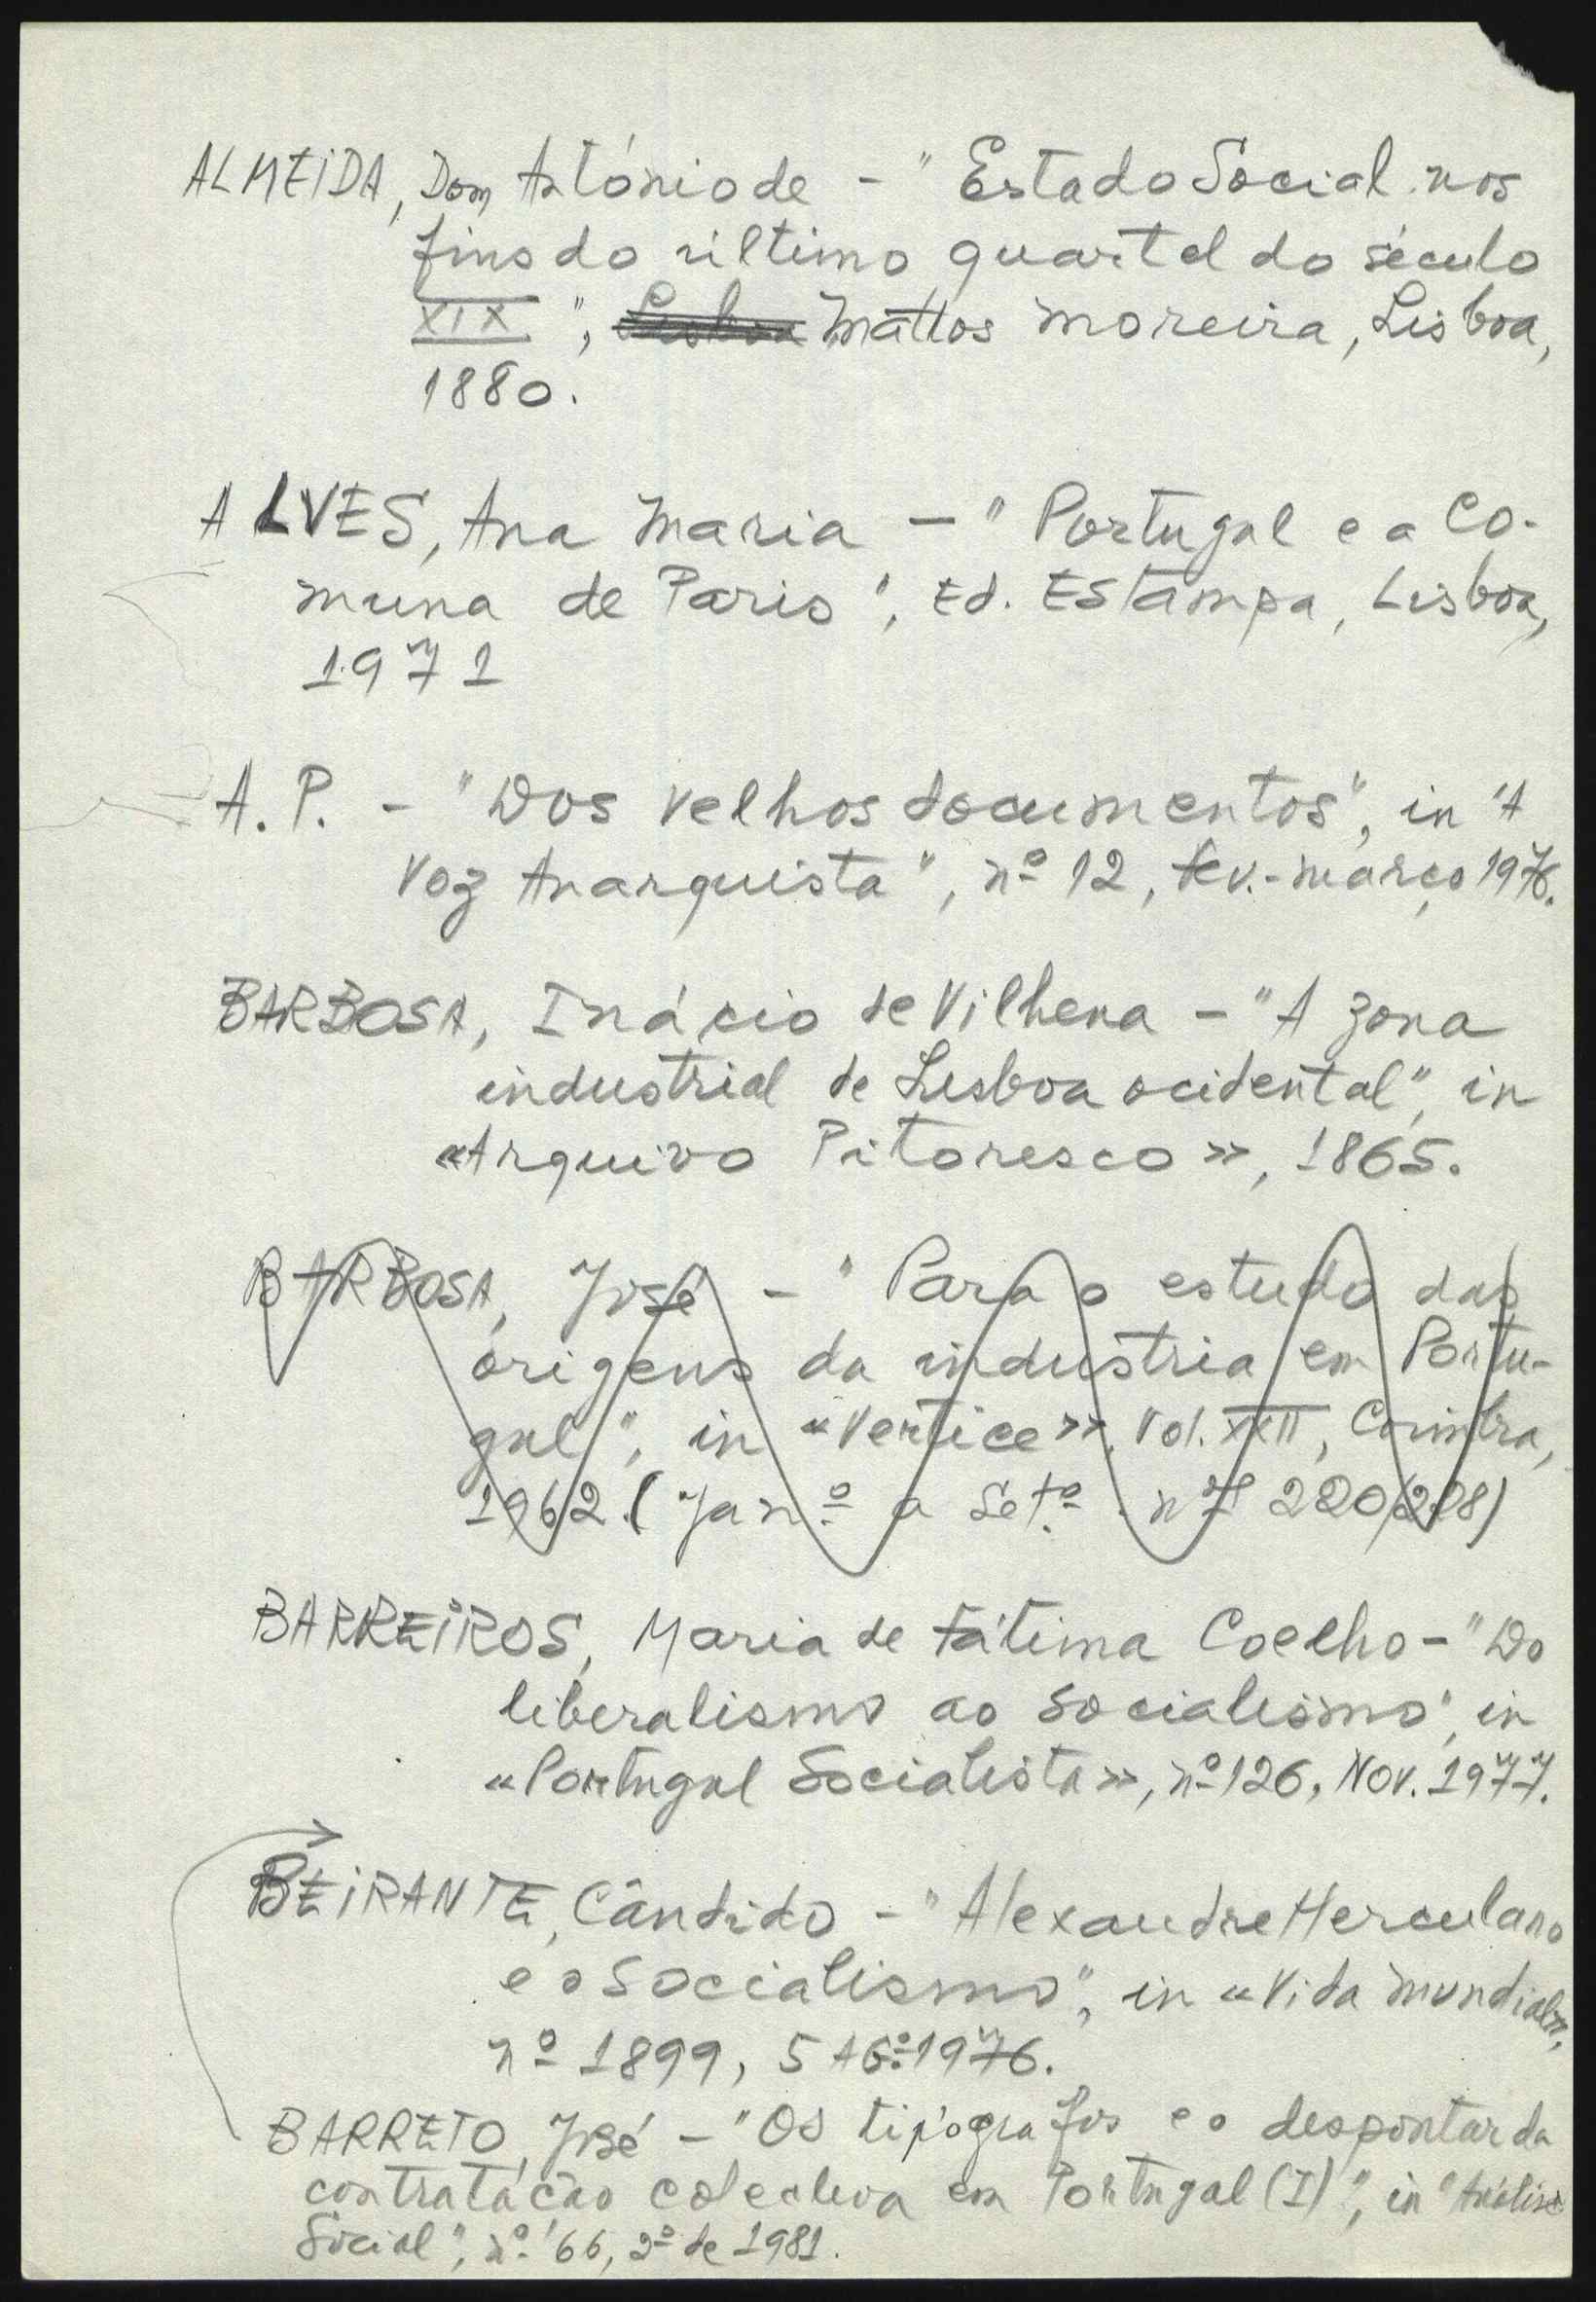 ALMEIDA, Dom António de - "Estado Social nos
fins do último quartel do século
XIX", Lisboa Mattos Moreira, Lisboa,
1880.
ALVES, Ana Maria - "Portugal e a Co-
muna de Paris", Ed. Estampa, Lisboa,
1971
A. P. - "Dos velhos documentos", in "A
Voz Anarquista", nº 12, Fev.-março 1976.
BARBOSA, Inácio de Vilhena - "A zona
industrial de Lisboa ocidental", in
«Arquivo Pitoresco», 1865.
BARBOSA, José - "Para o estudo das
origens da industria em Portu-
gal", in «Vertice», Vol. XXII, Coimbra,
1962. (Janº a Setº. nºs 220/228)
BARREIROS, Maria de Fátima Coelho - "Do
liberalismo ao socialismo", in
«Portugal Socialista», nº 126, Nov. 1977.
BEIRANTE, Cândido - "Alexandre Herculano
e o Socialismo", in «Vida Mundial»,
nº 1899, 5 AGº 1976.
BARRETO, José - "Os tipógrafos e o despontar da
contratação colectiva em Portugal (I)", in "Análise
Social", nº 66, 2º de 1981.